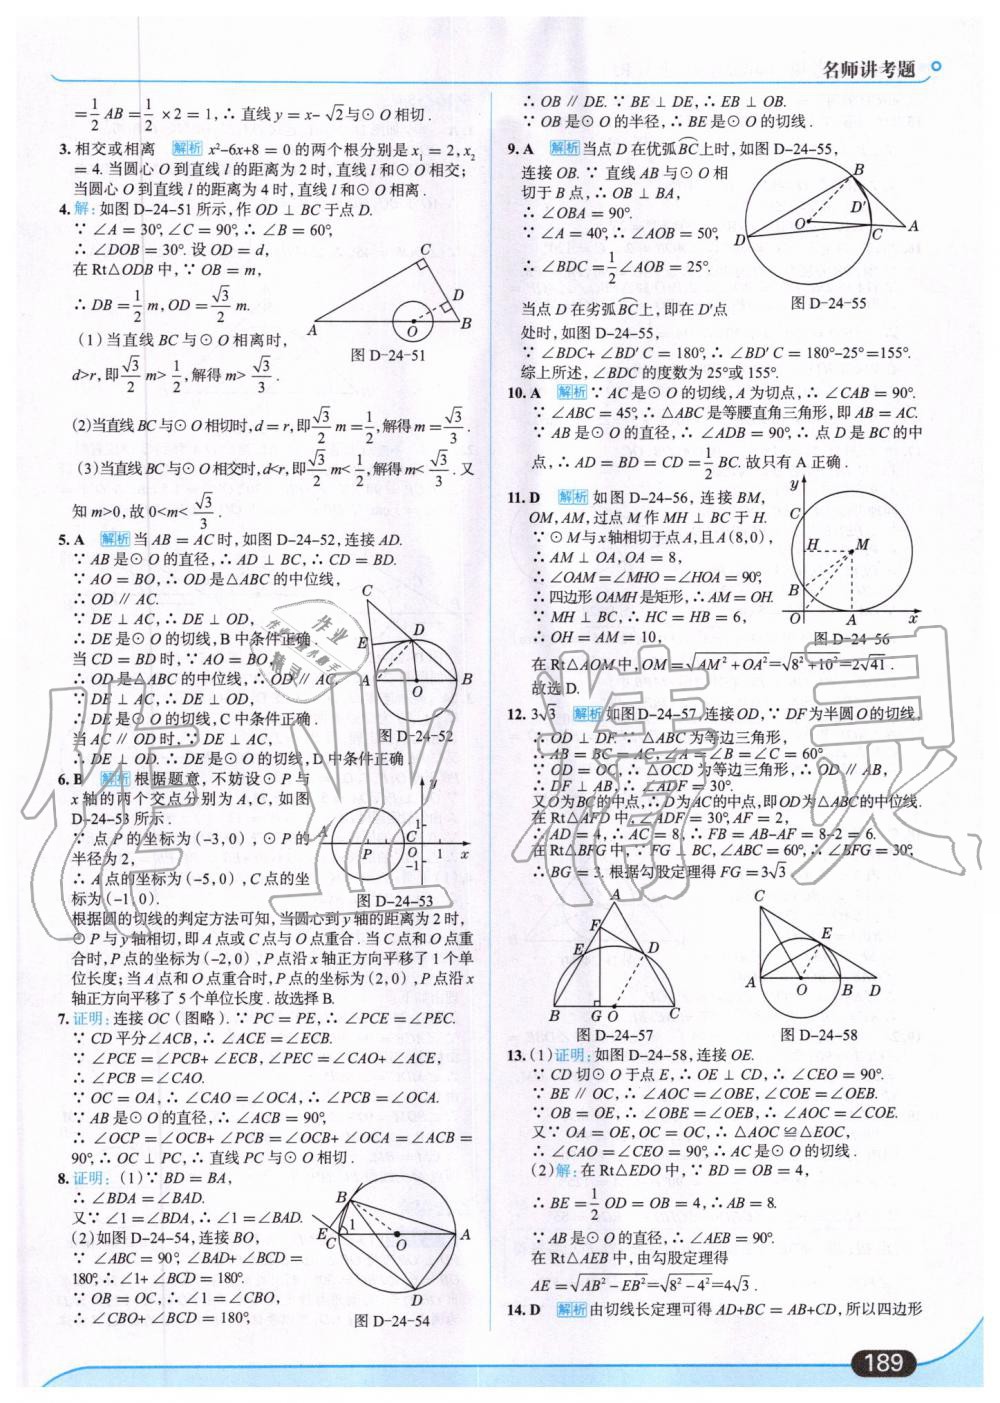 名师讲考题
=1/2 AB=1/2×2=1,∴直线y=x-√2与⊙O相切.
3.相交或相离 解析 x²-6x+8=0的两个根分别是x₁=2,x₂
=4.当圆心O到直线l的距离为2时,直线l和⊙O相交;
当圆心O到直线l的距离为4时,直线l和⊙O相离.
4.解:如图D-24-51所示,作OD⊥BC于点D.
∵∠A=30°,∠C=90°,∴∠B=60°,
∴∠DOB=30°.设OD=d,
在Rt△ODB中,∵OB=m,
∴DB=1/2 m,OD=√3/2 m.
(1)当直线BC与⊙O相离时,
d>r,即√3/2 m>1/2,解得m>√3/3.
C
D
A
O
B
图D-24-51
(2)当直线BC与⊙O相切时,d=r,即√3/2 m=1/2,解得m=√3/3.
(3)当直线BC与⊙O相交时,d<r,即√3/2 m<1/2,解得m<√3/3.又
知m>0,故0<m<√3/3.
5.A 解析 当AB=AC时,如图D-24-52,连接AD.
∵AB是⊙O的直径,∴AD⊥BC,∴CD=BD.
∵AO=BO,∴OD是△ABC的中位线,
∴OD∥AC.
∵DE⊥AC,∴DE⊥OD,
∴DE是⊙O的切线,B中条件正确.
当CD=BD时,∵AO=BO,
∴OD是△ABC的中位线,∴OD∥AC,
∵DE⊥AC,∴DE⊥OD,
∴DE是⊙O的切线,C中条件正确.
当AC∥OD时,∵DE⊥AC,
∴DE⊥OD.∴DE是⊙O的切线,D中条件正确.
C
E
D
A
O
B
图D-24-52
6.B 解析 根据题意,不妨设⊙P与
x轴的两个交点分别为A,C,如图
D-24-53所示.
∵点P的坐标为(-3,0),⊙P的
半径为2,
∴A点的坐标为(-5,0),C点的坐
标为(-1,0).
y
A
1
C
P
O
1
x
-1
图D-24-53
根据圆的切线的判定方法可知,当圆心到y轴的距离为2时,
⊙P与y轴相切,即A点或C点与O点重合.当C点和O点重
合时,P点的坐标为(-2,0),P点沿x轴正方向平移了1个单
位长度;当A点和O点重合时,P点的坐标为(2,0),P点沿x
轴正方向平移了5个单位长度.故选择B.
7.证明:连接OC(图略).∵PC=PE,∴∠PCE=∠PEC.
∵CD平分∠ACB,∴∠ACE=∠ECB.
∵∠PCE=∠PCB+∠ECB,∠PEC=∠CAO+∠ACE,
∴∠PCB=∠CAO.
∵OC=OA,∴∠CAO=∠OCA,∴∠PCB=∠OCA.
∵AB是⊙O的直径,∴∠ACB=90°,
∴∠OCP=∠OCB+∠PCB=∠OCB+∠OCA=∠ACB=
90°,∴OC⊥PC,∴直线PC与⊙O相切.
8.证明:(1)∵BD=BA,
∴∠BDA=∠BAD.
又∵∠1=∠BDA,∴∠1=∠BAD.
(2)如图D-24-54,连接BO,
∵∠ABC=90°,∠BAD+∠BCD=
180°,∴∠1+∠BCD=180°.
∵OB=OC,∴∠1=∠CBO,
∴∠CBO+∠BCD=180°,
B
E
1
C
O
A
D
图D-24-54
∴OB∥DE.∵BE⊥DE,∴EB⊥OB.
∵OB是⊙O的半径,∴BE是⊙O的切线.
9.A 解析 当点D在优弧BC上时,如图D-24-55,
连接OB.∵直线AB与⊙O相
切于B点,∴OB⊥BA,
∴∠OBA=90°.
∵∠A=40°,∴∠AOB=50°,
∴∠BDC=1/2∠AOB=25°.
当点D在劣弧BC上,即在D′点
处时,如图D-24-55,
B
D′
O
D
C
A
图D-24-55
∵∠BDC+∠BD′C=180°,∴∠BD′C=180°-25°=155°.
综上所述,∠BDC的度数为25°或155°.
10.A 解析 ∵AC是⊙O的切线,A为切点,∴∠CAB=90°.
∵∠ABC=45°,∴△ABC是等腰直角三角形,即AB=AC.
∵AB是⊙O的直径,∴∠ADB=90°,∴点D是BC的中
点,∴AD=BD=CD=1/2 BC.故只有A正确.
11.D 解析 如图D-24-56,连接BM,
OM,AM,过点M作MH⊥BC于H.
∵⊙M与x轴相切于点A,且A(8,0),
∴AM⊥OA,OA=8,
∴∠OAM=∠MHO=∠HOA=90°,
∴四边形OAMH是矩形,∴AM=OH.
∵MH⊥BC,∴HC=HB=6,
∴OH=AM=10,
y
C
H
M
B
O
A
x
图D-24-56
在Rt△AOM中,OM=√AM²+OA²=√8²+10²=2√41.
故选D.
12.3√3 解析 如图D-24-57,连接OD,∵DF为半圆O的切线,
∴OD⊥DF.∵△ABC为等边三角形,
∴AB=BC=AC,∠A=∠B=∠C=60°.
∵OD=OC,∴△OCD为等边三角形,∴OD∥AB,
∴DF⊥AB,∴∠ADF=30°.
又O为BC的中点,∴D为AC的中点,即OD为△ABC的中位线.
在Rt△AFD中,∠ADF=30°,AF=2,
∴AD=4,∴AC=8,∴FB=AB-AF=8-2=6.
在Rt△BFG中,∵FG⊥BC,∠ABC=60°,∴∠BFG=30°,
∴BG=3.根据勾股定理得FG=3√3.
A
F
E
D
B
G
O
C
图D-24-57
C
E
A
O
B
D
图D-24-58
13.(1)证明:如图D-24-58,连接OE.
∵CD切⊙O于点E,∴OE⊥CD,∴∠CEO=90°.
∵BE∥OC,∴∠AOC=∠OBE,∠COE=∠OEB.
∵OB=OE,∴∠OBE=∠OEB,∴∠AOC=∠COE.
又∵OA=OE,OC=OC,∴△AOC≌△EOC,
∴∠CAO=∠CEO=90°,∴AC是⊙O的切线.
(2)解:在Rt△EDO中,∵BD=OB=4,
∴BE=1/2 OD=OB=4,∴AB=8.
∵AB是⊙O的直径,∴∠AEB=90°.
在Rt△AEB中,由勾股定理得
AE=√AB²-EB²=√8²-4²=4√3.
14.D 解析 由切线长定理可得AD+BC=AB+CD,所以四边形
189
作业精灵